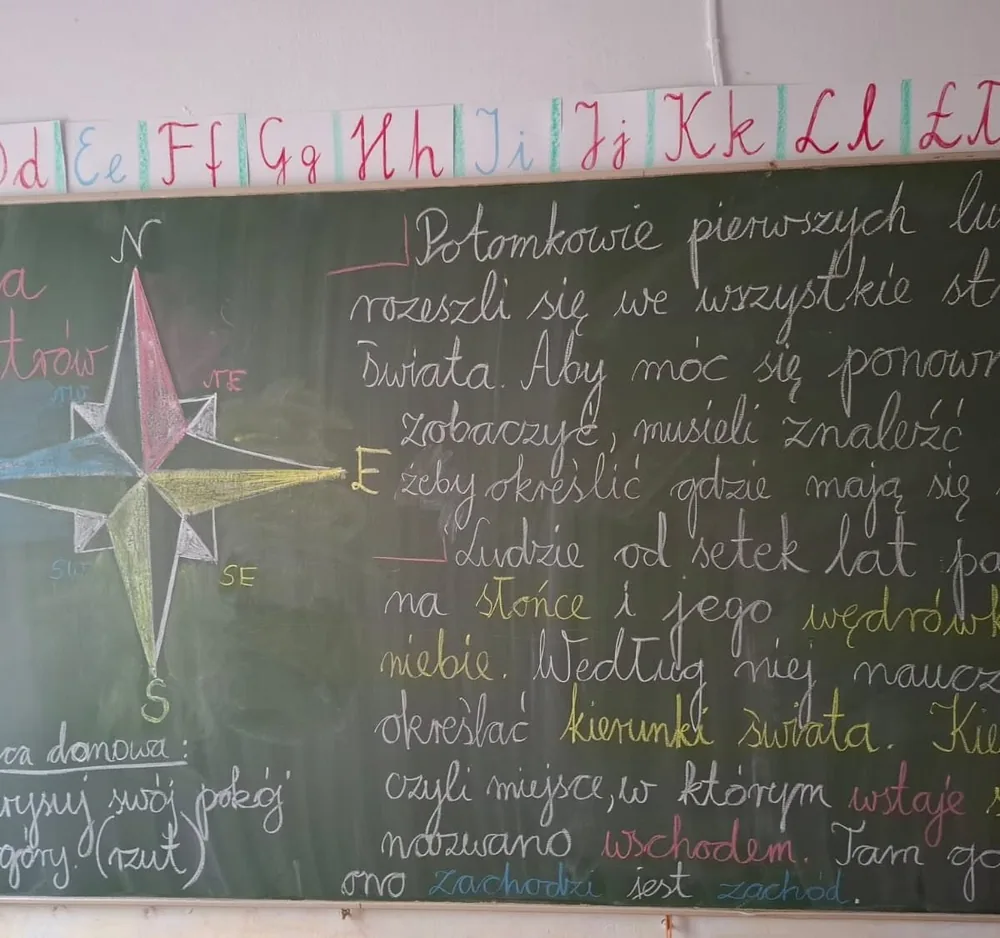 Dd Ee Ff Gg Hh Ii Jj Kk Ll Ł
N
a
trów
NW
NE
E
SW
SE
S
ca domowa:
rysuj swój pokój
góry. (rzut)
Potomkowie pierwszych lu
rozeszli się we wszystkie st
świata. Aby móc się ponown
zobaczyć, musieli znaleźć
żeby określić gdzie mają się
Ludzie od setek lat pa
na słońce i jego wędrówk
niebie. Według niej naucz
określać kierunki świata. Kie
czyli miejsce, w którym wstaje s
nazwano wschodem. Tam gd
ono zachodzi jest zachód.